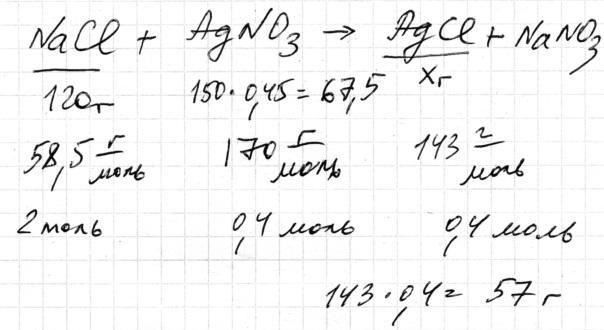 NaCl + AgNO3 → AgCl + NaNO3
120г 150·0,45=67,5 xг
58,5 г/моль 170 г/моль 143 г/моль
2 моль 0,4 моль 0,4 моль
143·0,4= 57 г